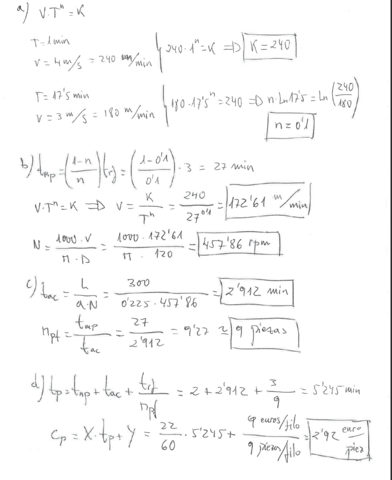 a) V·Tⁿ = K
T = 1 min
V = 4 m/s = 240 m/min } 240·1ⁿ = K => K = 240
T = 17'5 min
V = 3 m/s = 180 m/min } 180·17'5ⁿ = 240 => n·Ln 17'5 = Ln (240/180)
n = 0'1
b) t_mp = ((1-n)/n) t_rf = ((1-0'1)/0'1)·3 = 27 min
V·Tⁿ = K => V = K/Tⁿ = 240/27^0'1 = 172'61 m/min
N = 1000·V/(π·D) = 1000·172'61/(π·120) = 457'86 rpm
c) t_ac = L/(a·N) = 300/(0'225·457'86) = 2'912 min
n_pf = t_mp/t_ac = 27/2'912 = 9'27 ≃ 9 piezas
d) t_p = t_mp + t_ac + t_rf/n_pf = 2 + 2'912 + 3/9 = 5'245 min
C_p = X·t_p + Y = 22/60·5'245 + (9 euros/filo)/(9 piezas/filo) = 2'92 euro/pieza